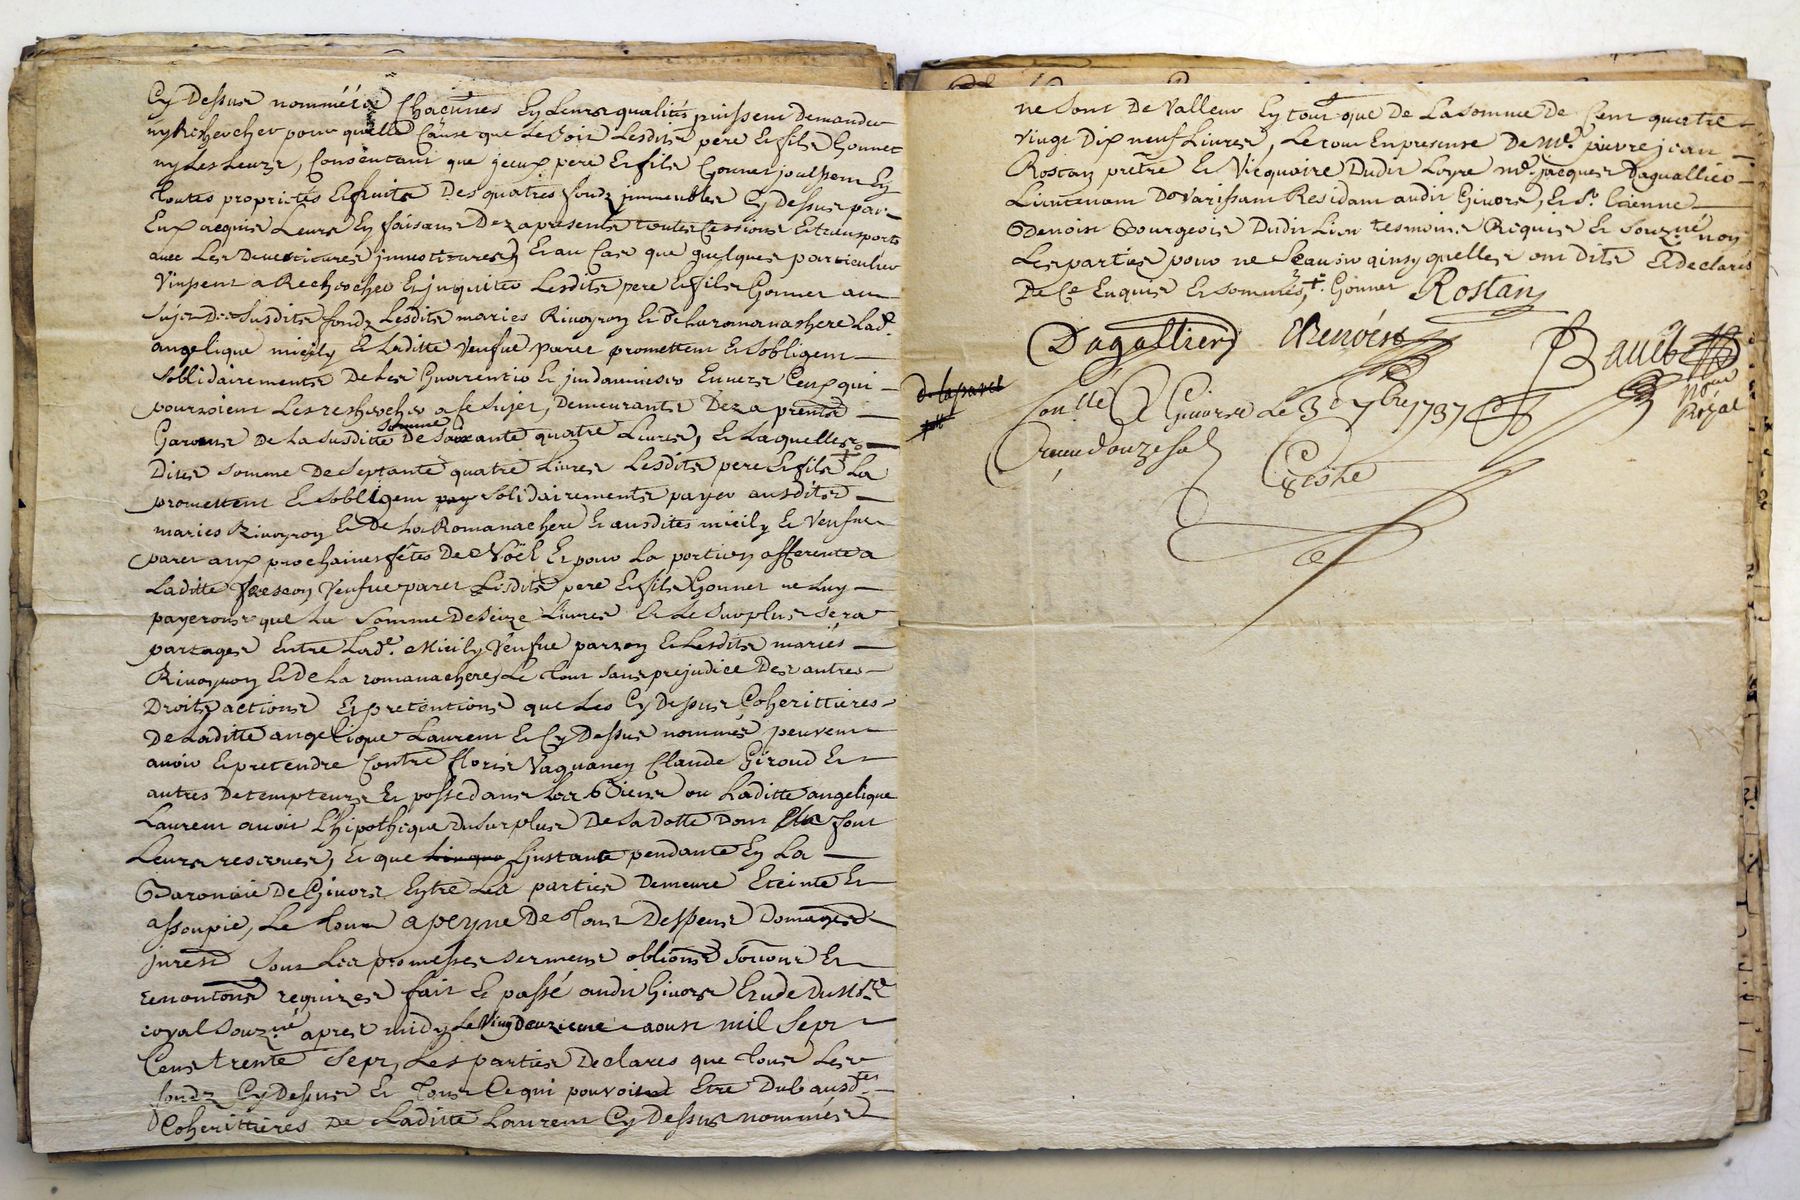 Cy Dessus nommées Chacunes En Leurs qualités puissent Demander
ny Rechercher pour quelle Cause que Ce Soit Lesdits père Et fils Gonnet
ny Les Leurs, Consentant que jceux pere Et fils Gonnet jouissent En
toutes proprietés Et fruits Des quatres fondz jmmeubles Cy Dessus par
Eux acquis Leurs En faisans Dez apresents toutes Cessions Et transports
avec Les Devestitures jnvestitures, Et au Cas que quelques particulier
Vinssent a Rechercher Et jnquiter Lesdits pere Et fils Gonnet au
Sujet Des Susdits fondz Lesdits maries Rivoyron Et De La romanachere Lad.e
angelique micily Et Laditte Veufue paret promettent Et Sobligent
Sollidairements De Les Guarentir Et jndamniser Envers Ceux qui
pouroient Les rechercher a Se Sujet, Demeurants Dez a present
Garants De La Susditte somme De Soixante quatre Livres, Et Laquelles
Dites Somme De Septante quatre Livres Lesdits pere Et fils La
promettent Et Sobligent pay Solidairements payer ausdits
maries Rivoyron Et De La Romanachere Et ausdites micily Et Veufue
paret aux prochaines fêtes De Noël Et pour La portion afferente a
Laditte Veufue paret Lesdits pere Et fils Gonnet ne Luy
payerons que La Somme De Seize Livres Et Le Surplus Sera
partager Entre Lad.e Micily Veufue Et Lesdits mariés
Rivoyron Et De La romanachere, Le tout Sans prejudice Des autres
Droits, actions Et pretentions que Les Cy Dessus Coherittieres
De Laditte angelique Laurent Et Cy Dessus nommés peuvent
avoir Et pretendre Contre floris Vaganey Claude Giroud Et
autres Detempteurs Et possedans Les Biens ou Laditte angelique
Laurent avoit L'hipotheque Du Surplus De Sa Dotte Dont font
Leurs reserves, Et que Ljnstante pendante En La
Baronnie De Givors Entre Les parties Demeure Eteinte Et
assoupie, Le tout a peyne De tous Despens Domages
jnrest Sous Les promesses serments oblions Soûons Et
renontons requizes fait Et passé audit Givors Etude Du N.re
royal Souz.né apres midy Le Ving Deuzieme aoust mil Sept
Cens trente Sept, Les parties Declares que tous Les
fondz Cy Dessus Et tous Ce qui pouvoient Etre Dub ausd.tes
Coherittieres De Laditte Laurent Cy Dessus nommées
ne Sont De Valleur En tout que De La Somme De Cent quatre
Vingt Dix neuf Livres, Le tout En presense De M.re pierre jean
Rostan prêtre Et Vicquaire Dudit Loyre m.e jacques Dagallier
Lieutenant De Varissant Residant audit Givors, Et S.r Etienne
Benoist Bourgeois Dudit Lieu tesmoins Requis Et Souz.né non
Les parties pour ne Scavoir ainsy quelles ont Dits Et Declarés
De Ce Enquis Et Sommées, J. Gonnet Rostan
Dagallier Benoist Bauet
No.re
Royal
Con.llé A Givors Le 3e 7bre 1737
Reçeu douze Sol